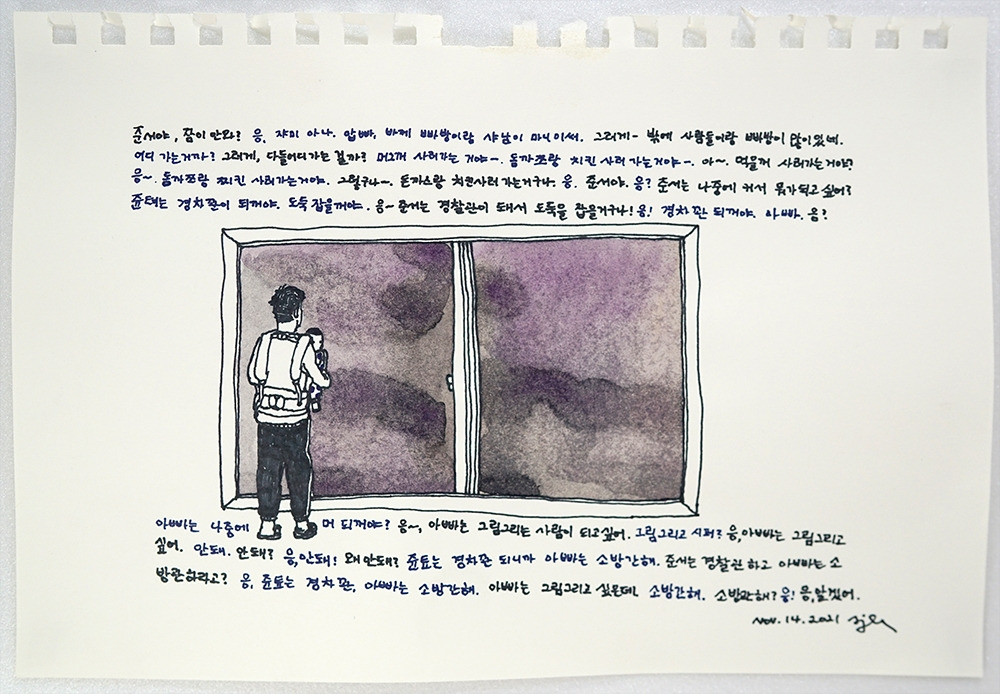 준서야, 잠이 안와? 응, 쟈미 아나. 압빠, 바께 빠방이랑 샤남이 마니이써. 그러게~ 밖에 사람들이랑 빠방이 많이있네.
어디 가는거까? 그러게, 다들어디가는 걸까? 머그꺼 사러가는 거야~. 돔까쯔랑 치킨 사러가는거야~. 아~. 먹을꺼 사러가는거야?
응~. 돔까쯔랑 찌킨 사러가는거야. 그렇구나~. 돈까스랑 치킨사러가는거구나. 응. 준서야. 응? 준서는 나중에 커서 뭐가되고싶어?
쥰텨는 경차꽌이 되꺼야. 도둑잡을꺼야. 응~ 준서는 경찰관이 돼서 도둑을 잡을거구나! 응! 경차꽌 되꺼야. 아빠. 응?
아빠는 나중에 머 되꺼야? 응~, 아빠는 그림그리는 사람이 되고싶어. 그림그리고 시퍼? 응, 아빠는 그림그리고
싶어. 안돼. 안돼? 응, 안돼! 왜안돼? 쥰텨는 경차꽌 되니까 아빠는 소방간해. 준서는경찰관하고 아빠는 소
방관하라고? 응, 쥰텨는 경차꽌, 아빠는 소방간해. 아빠는 그림그리고 싶은데. 소방간해. 소방관해? 응! 응, 알겠어.
Nov. 14. 2021